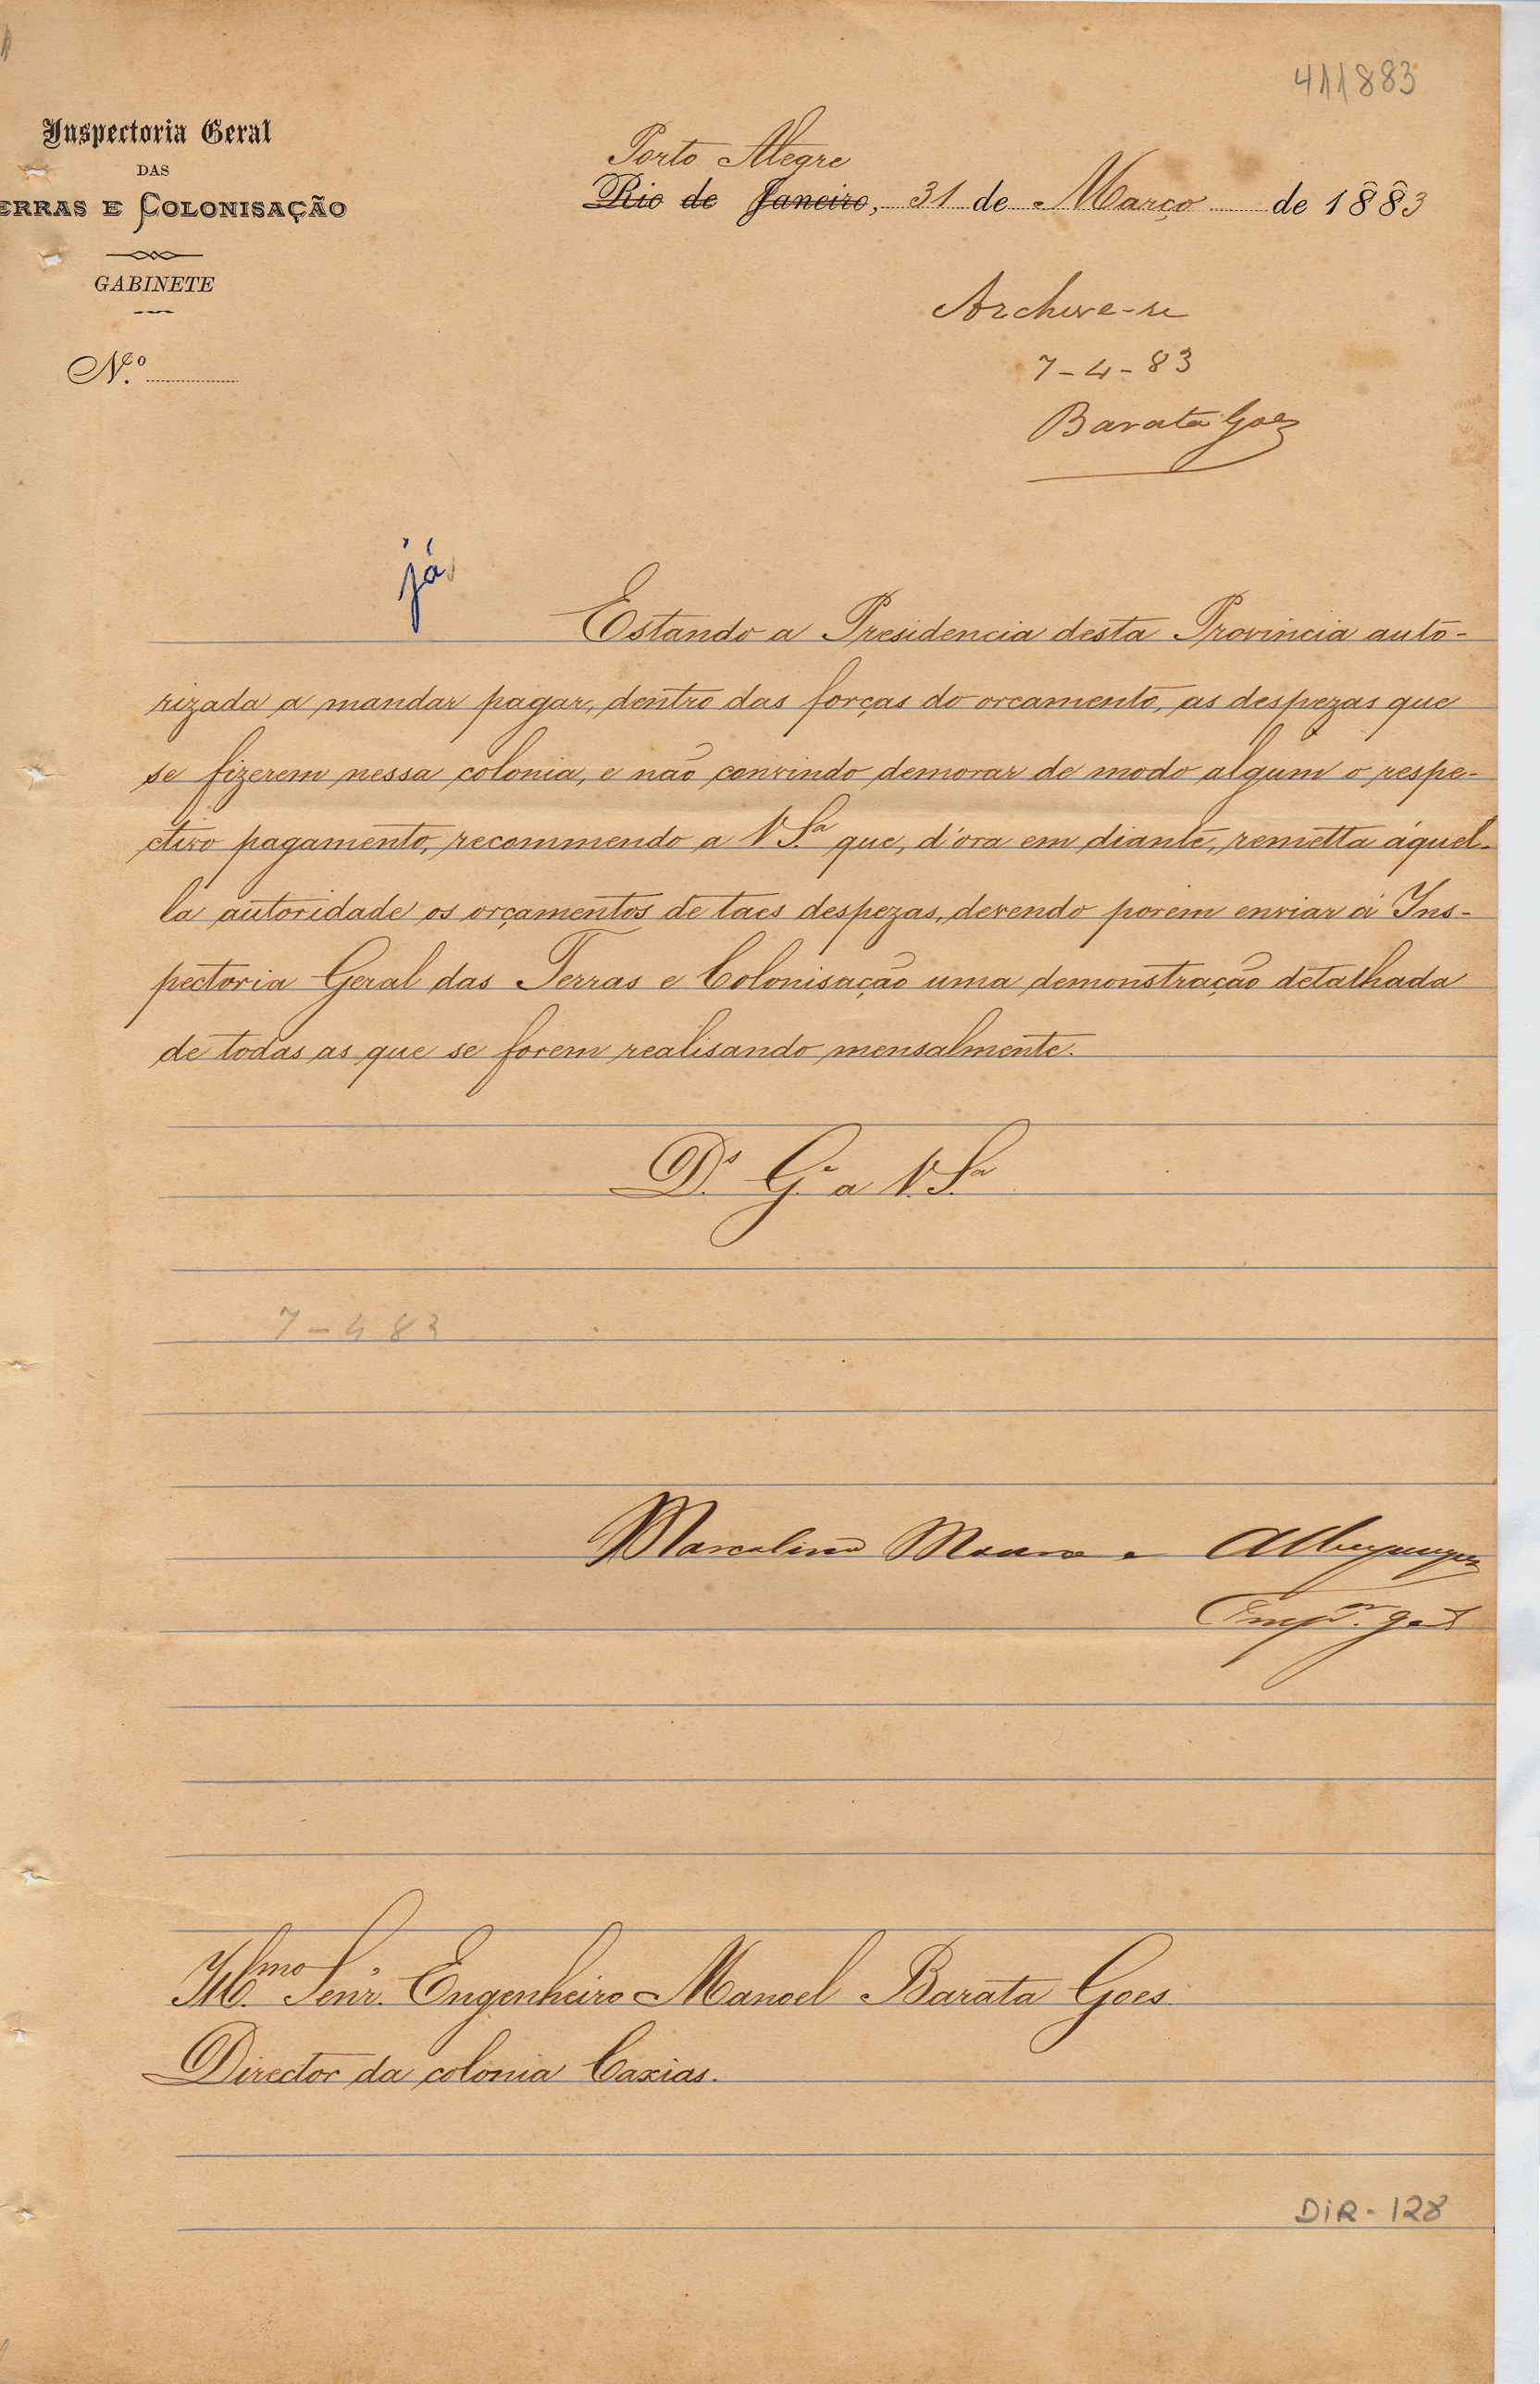 411883
Inspectoria Geral
DAS
ERRAS E COLONISAÇÃO
GABINETE
N.º
Porto Alegre
Rio de Janeiro, 31 de Março de 1883
Archive-se
7-4-83
Barata Goes
já
Estando a Presidencia desta Provincia auto-
rizada a mandar pagar, dentro das forças do orcamento, as despezas que
se fizerem nessa colonia, e não convindo demorar de modo algum o respe-
ctivo pagamento, recommendo a V. S.ª que, d'óra em diante, remetta áquel-
la autoridade os orçamentos de taes despezas, devendo porem enviar á Ins-
pectoria Geral das Terras e Colonisação uma demonstração detalhada
de todas as que se forem realisando mensalmente.
D.s G.e a V. S.ª
7-4 83
Marcolino Moura e Albuquerque
Insp.or geral
Ill.mo Senr. Engenheiro Manoel Barata Goes.
Director da colonia Caxias.
DIR-128